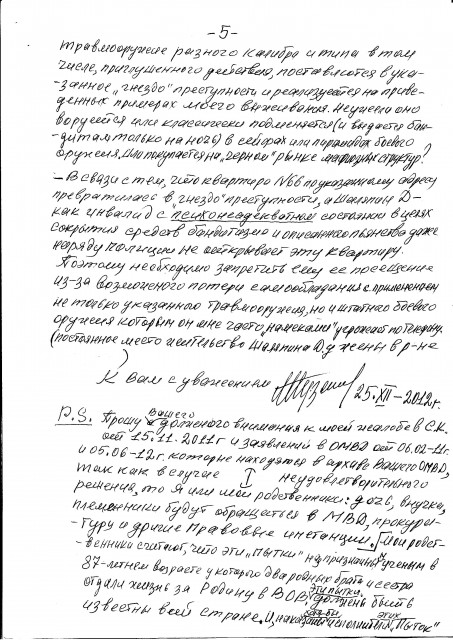 - 5 -
травмооружие разного калибра и типа в том
числе, приглушенного действия, поставляются в ука-
-занное "гнездо" преступности и реализуется на приве-
денных примерах моего выживания. Неужели оно
воруется или классически подменяется (и выдается бан-
дитам только на ночь) в сейфах или пирамидах боевого
оружия, или покупается на "черном" рынке структур?
- В связи с тем, что квартира №66 по указанному адресу
превратилась в "гнездо" преступности, а Шаляпин Д-
как инвалид с психонеадекватном состоянии в целях
сокрытия средств бандитизма и описанного пьянства даже
наряду полиции не открывает эту квартиру.
Поэтому необходимо запретить ему ее посещение
из-за возможного потери самообладания с применением
не только указанного травмооружия, но и штатного боевого
оружия которым он мне часто "намеками" угрожает по телефону.
(постоянное место жительство Шаляпина Д. у жены в р-не
)
К Вам с уважением 25.XII-2012г.
P.S. Прошу Вашего должного внимания к моей жалобе в С.К.
от 15.11.2011г и заявлений в ОМВД от 06.02-11г
и 05.06-12г. которые находятся в архиве Вашего ОМВД,
так как в случае неудовлетворительного
решения, то Я или мои родственники: дочь, внучка,
племенники будут обращаться в МВД, прокура-
туру и другие Правовые инстанции. Мои родст-
-венники считают, что эти "Пытки" над признанным ученным в
87-летнем возрасте у которого два родных брата и сестра
отдали жизнь за Родину в В.О.В. эти пытки должны быть
известны всей стране. И, наказаны исполнители этих "Пыток"